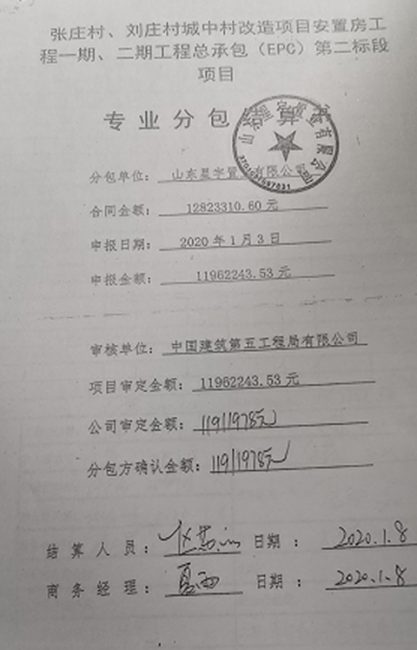 张庄村、刘庄村城中村改造项目安置房工
程一期、二期工程总承包（EPC）第二标段
项目
专业分包 算
分包单位： 山东星宇置 有限公司
合同金额： 12823310.60 元
申报日期： 2020 年 1 月 3 日
申报金额： 11962243.53 元
审核单位： 中国建筑第五工程局有限公司
项目审定金额： 11962243.53 元
公司审定金额： 11911978元
分包方确认金额： 11911978元
结算人员： 日期： 2020.1.8
商务经理： 日期： 2020.1.8